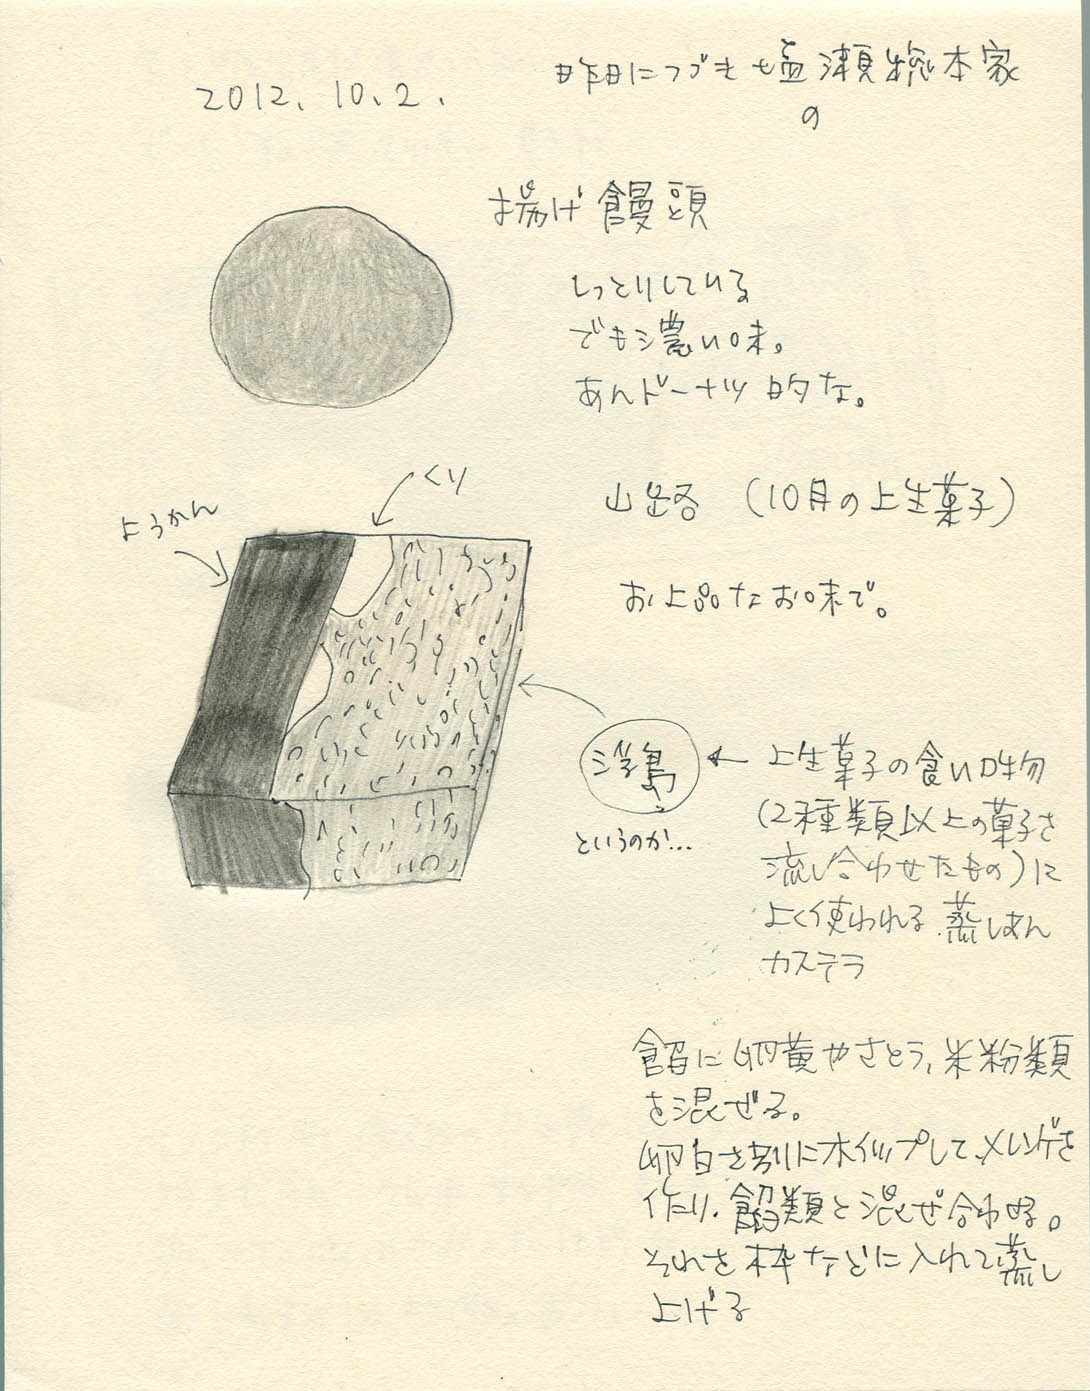 2012.10.2.
昨日につづき塩瀬総本家
の
揚げ饅頭
しっとりしている
でも濃い味。
あんドーナツ的な。
くり
ようかん
山路 (10月の上生菓子)
お上品なお味で。
浮島
というのか…
← 上生菓子の食い口生勿
(2種類以上の菓子を
流し合わせたもの)に
よく使われる蒸しあん
カステラ
餡に卵黄やさとう、米粉類
を混ぜる。
卵白を別にホイップして、メレンゲを
作り、餡類と混ぜ合わせる。
それを枠などに入れて蒸し
上げる